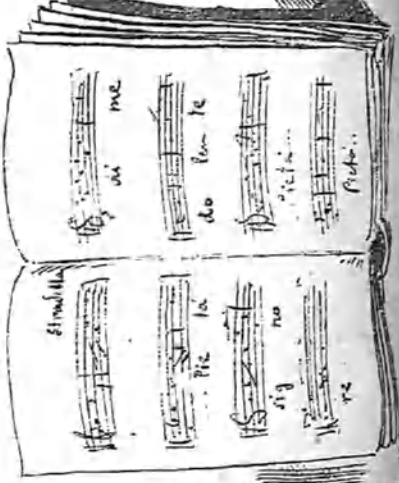 Stradella
... Pie tà
sig no
re
di me
do len te
Pietà...
Pietà..